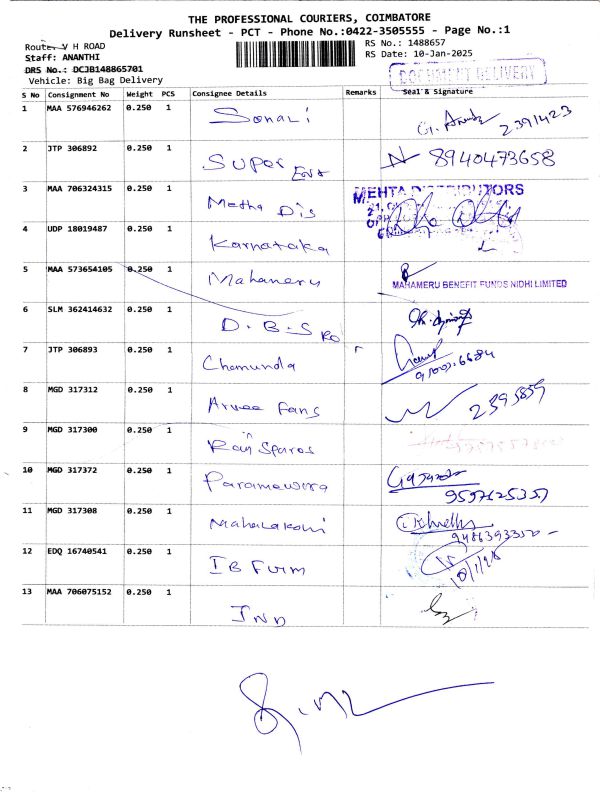 THE PROFESSIONAL COURIERS, COIMBATORE
Delivery Runsheet - PCT - Phone No.:0422-3505555 - Page No.:1
Route: V H ROAD
RS No.: 1488657
Staff: ANANTHI
RS Date: 10-Jan-2025
DRS No.: DCJB148865701
Vehicle: Big Bag Delivery
DOCUMENT DELIVERY
S No Consignment No Weight PCS Consignee Details Remarks Seal & Signature
1 MAA 576946262 0.250 1 Sonali 2391423
2 JTP 306892 0.250 1 Super 8940473658
3 MAA 706324315 0.250 1 Metha Dis MEHTA DISTRIBUTORS
4 UDP 18019487 0.250 1 Karnataka
5 MAA 573654105 0.250 1 Mahameru MAHAMERU BENEFIT FUNDS NIDHI LIMITED
6 SLM 362414632 0.250 1 D.B.S RO
7 JTP 306893 0.250 1 Chamunda
8 MGD 317312 0.250 1 Arvee Fans 2395859
9 MGD 317300 0.250 1 Spares
10 MGD 317372 0.250 1
11 MGD 317308 0.250 1 9486393350
12 EDQ 16740541 0.250 1 IB Furm
13 MAA 706075152 0.250 1 IND